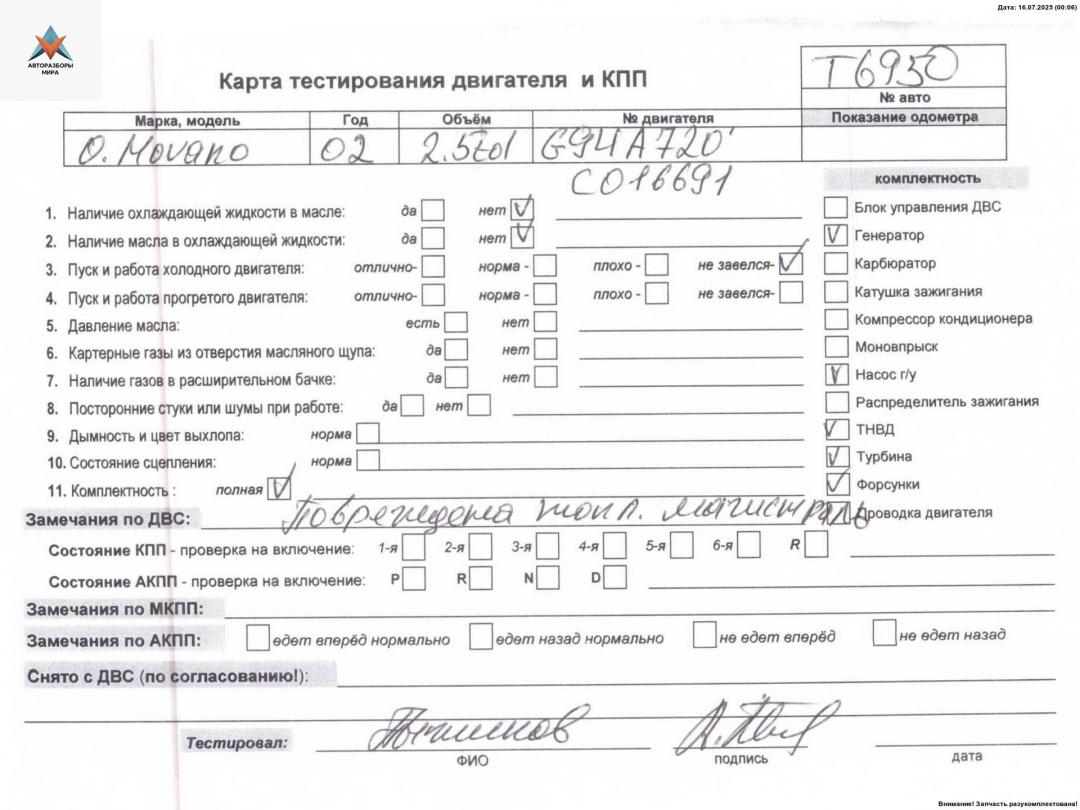 Дата: 16.07.2025 (00:06)
АВТОРАЗБОРЫ
МИРА
Карта тестирования двигателя и КПП
T6950
№ авто
Марка, модель Год Объём № двигателя Показание одометра
O. Movano 02 2.5tdi G9UA720
C016691
комплектность
1. Наличие охлаждающей жидкости в масле: да нет
Блок управления ДВС
2. Наличие масла в охлаждающей жидкости: да нет
Генератор
3. Пуск и работа холодного двигателя: отлично- норма - плохо - не завелся-
Карбюратор
4. Пуск и работа прогретого двигателя: отлично- норма - плохо - не завелся-
Катушка зажигания
5. Давление масла: есть нет
Компрессор кондиционера
6. Картерные газы из отверстия масляного щупа: да нет
Моновпрыск
7. Наличие газов в расширительном бачке: да нет
Насос г/у
8. Посторонние стуки или шумы при работе: да нет
Распределитель зажигания
9. Дымность и цвет выхлопа: норма
ТНВД
10. Состояние сцепления: норма
Турбина
11. Комплектность : полная
Форсунки
Замечания по ДВС: Повреждена топл. магистраль
Проводка двигателя
Состояние КПП - проверка на включение: 1-я 2-я 3-я 4-я 5-я 6-я R
Состояние АКПП - проверка на включение: P R N D
Замечания по МКПП:
Замечания по АКПП: едет вперёд нормально едет назад нормально не едет вперёд не едет назад
Снято с ДВС (по согласованию!):
Тестировал:
ФИО подпись дата
Внимание! Запчасть разукомплектована!